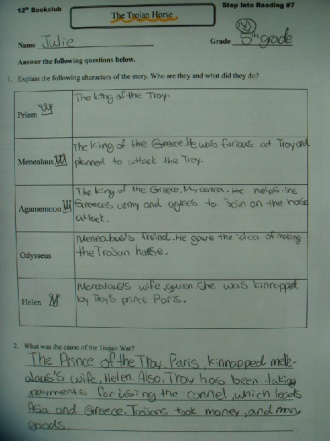 12th Bookclub
Step into Reading #7
The Trojan Horse
Name Julie
Grade 5th grade
Answer the following questions below.
1. Explain the following characters of the story. Who are they and what did they do?
Priam
The king of the Troy.
Menealaus
The king of the Greece. He was furious at Troy and
planned to attack the Troy.
Agamemnon
The king of the Greece, He helps the
Greece's army and agrees to join on the horse
attack.
Odysseus
Menealaus's friend. He gave the idea of making
the Trojan horse.
Helen
Menealaus's wife, queen. She was kinnapped
by Troy's prince Paris.
2. What was the cause of the Trojan War?
The Prince of the Troy, Paris, kinnapped mele-
alaus's wife, Helen. Also, Troy has been taking
payments for using the connel, which leads
Asia and Greece. Trojans took money, and many
goods.